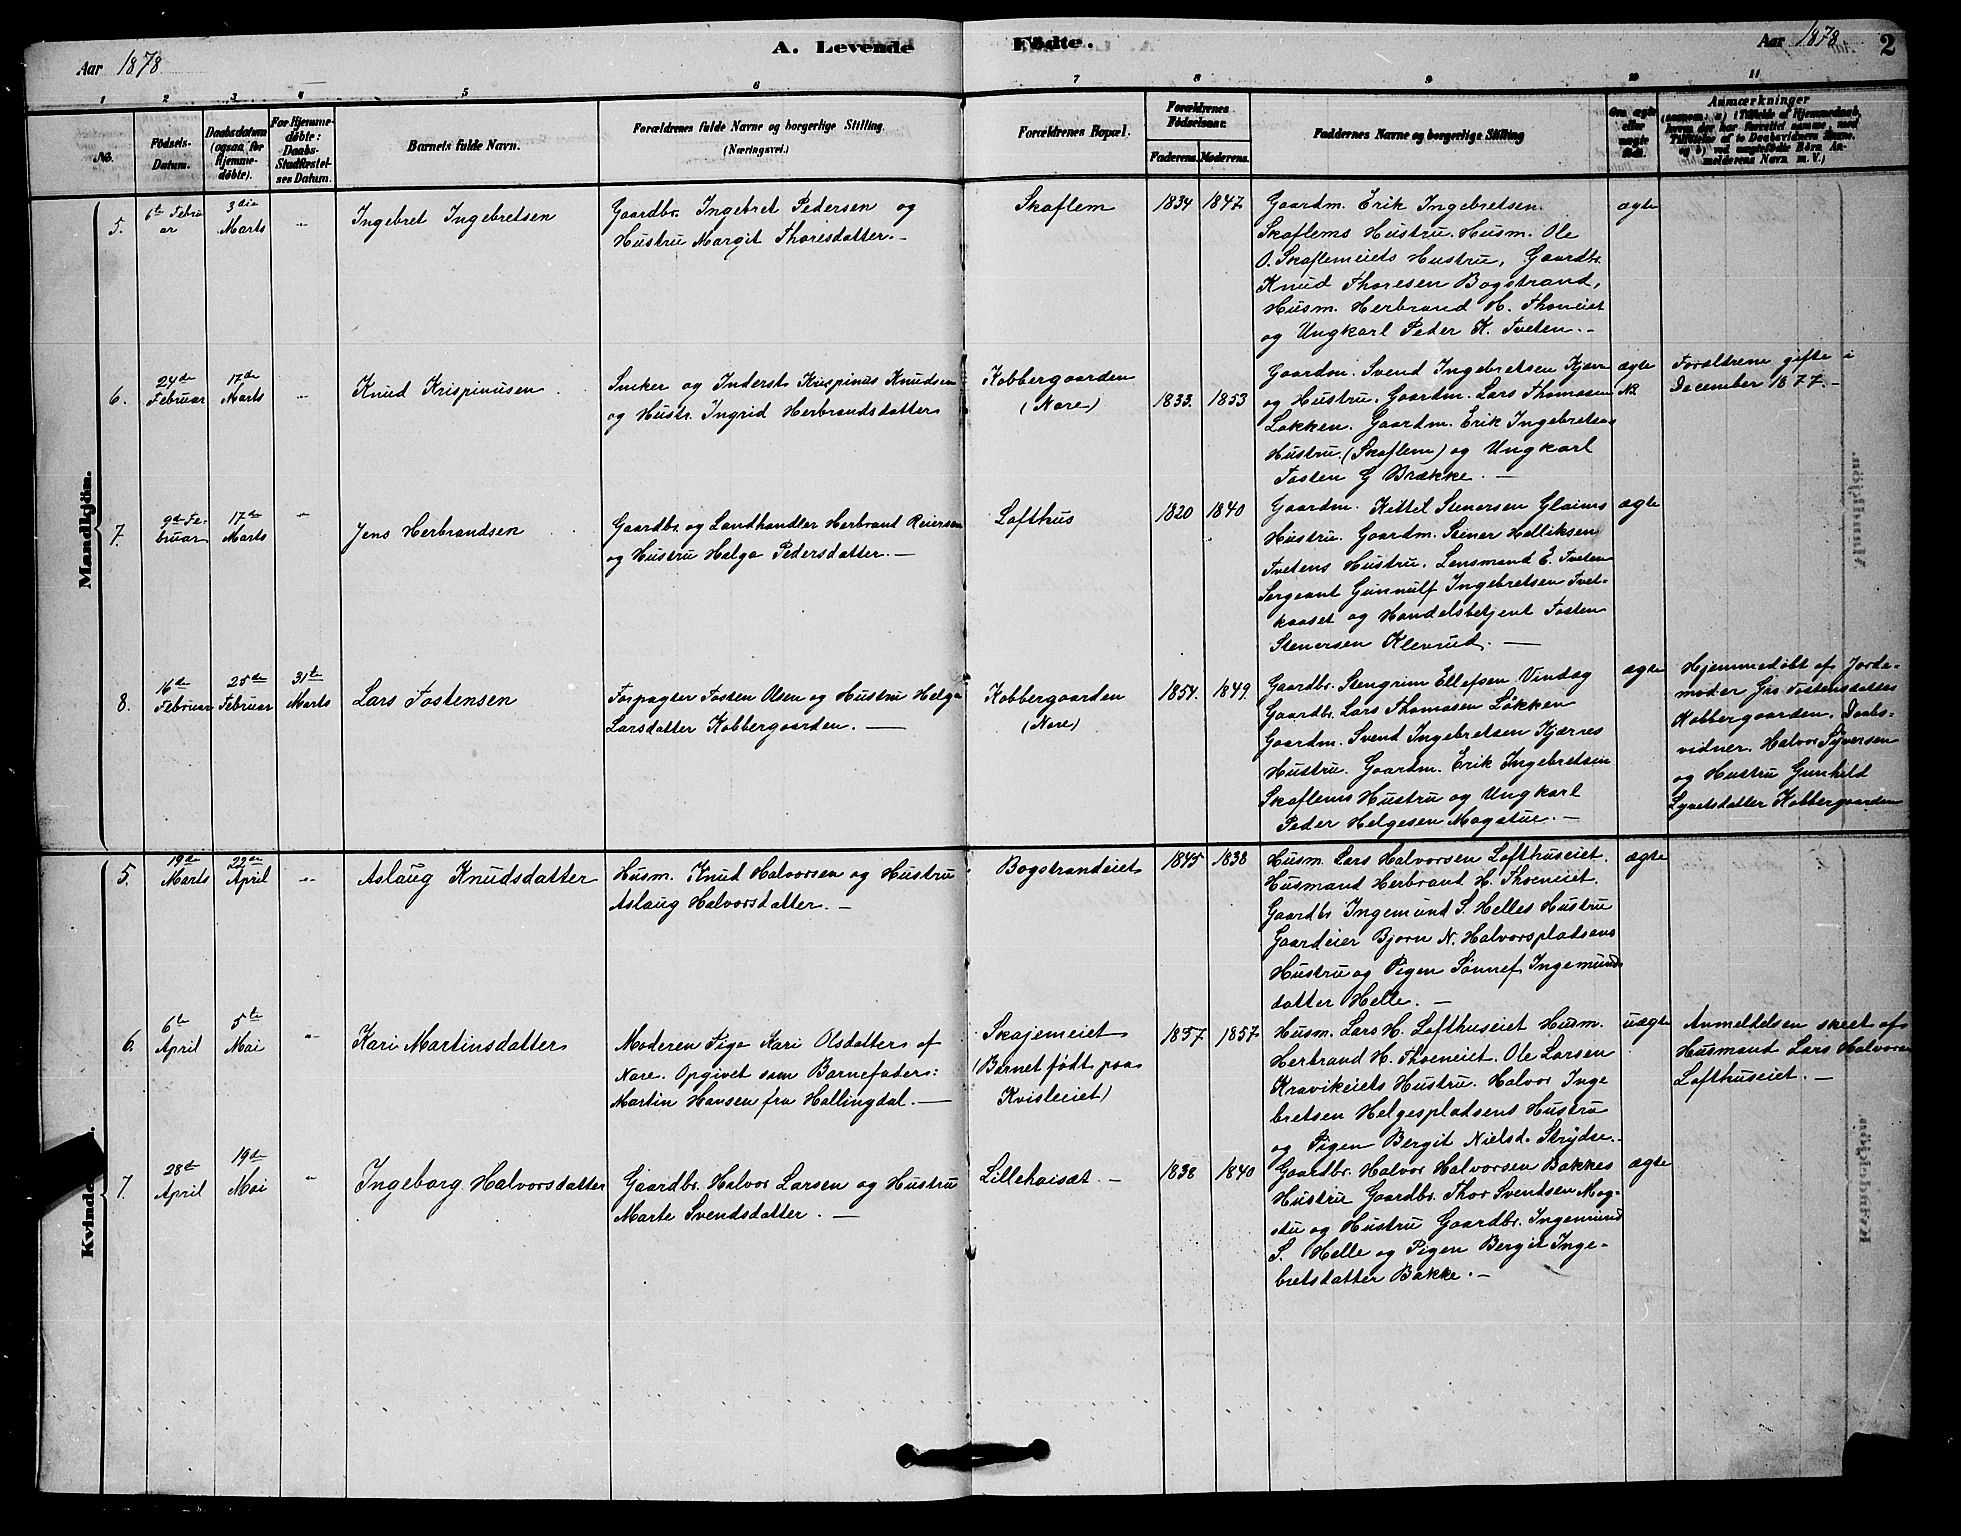 A. Levende Födte.
Aar 1878
Aar 1878
2
1 2 3 4 5 6 7 8 9 10 11
No.
Födsels-
Datum.
Daabsdatum
(ogsaa for
Hjemme-
døbte).
For Hjemme-
døbte:
Daabs-
Stadfæstel-
ses Datum.
Barnets fulde Navn.
Forældrenes fulde Navne og borgerlige Stilling.
(Næringsvei.)
Forældrenes Bopæl.
Forældrenes
Fødselsaar.
Faderens.
Moderens.
Faddernes Navne og borgerlige Stilling
Om ægte
eller
uægte
født.
Anmærkninger
Mandkjön.
5.
6te Febru
ar
3die
Marts
Ingebret Ingebretsen
Gaardbr. Ingebret Pedersen og
Hustru Margit Thoresdatter. -
Skaflem
1834
1847
Gaardm. Erik Ingebretsen
Skaflems Hustru. Husm. Ole
O. Skaflemeiets Hustru, Gaardbr.
Knud Thoresen Bogstrand,
Husm. Herbrand H. Thoneiet
og Ungkarl Peder K. Tveten. -
ægte
6.
24de
Februar
17de
Marts
Knud Krispinusen
Smker og Inderst Krispinus Knudsen
og Hustr. Ingrid Herbrandsdatter
Kobbergaarden
(Nore)
1833.
1853
Gaardm. Svend Ingebretsen Kjær
og Hustru. Gaardm. Lars Thomasen
Løkken. Gaardm. Erik Ingebretsens
Hustru. (Skaflem) og Ungkarl
Tosten G Brække. -
ægte
NB
Forældrene gifte i
December 1877. -
7.
9de Fe-
bruar
17de
Marts
Jens Herbrandsen
Gaardbr. og Landhandler Herbrand Reiersen
og Hustru Helga Pedersdatter. -
Lofthus
1820
1840
Gaardm. Kittel Stenersen Glaims
Hustru. Gaardm. Steiner Helliksen
Tvetens Hustru. Lensmand E. Tveten
Sergeant Gunnulf Ingebretsen Tvet-
kaaset og Handelsbetjent Tosten
Stenersen Klevrud. -
ægte
8.
16de
Februar
25de
Februar
31te
Marts
Lars Tostensen
Forpagter Tosten Olsen og Hustru Helga
Larsdatter Kobbergaarden. -
Kobbergaarden
(Nore)
1854.
1849.
Gaardbr. Stengrim Ellefsen Vindeg
Gaardbr. Lars Thomasen Løkken
Gaardm. Svend Ingebretsen Kjærnes
Hustru. Gaardm. Erik Ingebretsen
Skaflems Hustru og Ungkarl
Peder Helgesen Mogstue. -
ægte
Hjemmedøbt af Jorde-
moder Gro Tostensdatter
Kobbergaarden. Daabs-
vidner. Halvor Syversen
og Hustru Gunhild
Kobbergaarden
Kvinde
5.
19de
Marts
22de
April
Aslaug Knudsdatter
Husm. Knud Halvorsen og Hustru
Aslaug Halvorsdatter. -
Bogstrandeiet
1845
1838
Husm. Lars Halvorsen Lofthuseiet.
Husmand Herbrand H. Thoeneiet.
Gaardbr. Ingemund S. Helles Hustru
Gaardeier Bjørn N. Halvorspladsens
Hustru og Pigen Sønnef Ingemunds
datter Helle. -
ægte
6.
6te
April
5te
Mai
Kari Martinsdatter
Moderen Pige Kari Olsdatter af
Nore. Opgivet som Barnefader:
Martin Hansen fra Hallingdal. -
Skajemeiet
(Barnet født paa
Kvisleeiet)
1857
1857.
Husm. Lars H. Lofthuseiet Husm.
Herbrand H. Thoeneiet. Ole Larsen
Kravikeiets Hustru. Halvor Inge
bretsen Helgespladsens Hustru
og Pigen Bergit Nielsd. Strydse.
uægte
Anmeldelsen skeet af
Husmand Lars Halvorsen
Lofthuseiet. -
7.
28de
April
19de
Mai
Ingeborg Halvorsdatter
Gaardbr. Halvor Larsen og Hustru
Marte Svendsdatter. -
Lillehaisæt. -
1838
1840
Gaardbr. Halvor Halvorsen Bakkes
Hustru Gaardbr. Thor Svendsen Mog-
stu og Hustru Gaardbr. Ingemund
S. Helle og Pigen Bergit Inge-
bretsdatter Bakke. -
ægte